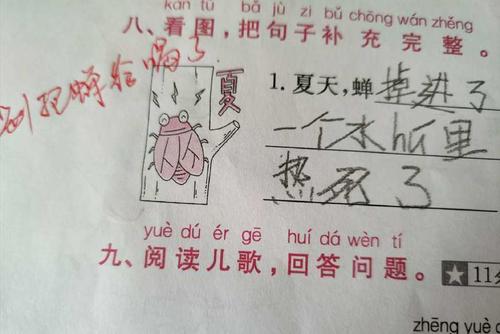 kàn tú bǎ jù zi bǔ chōng wán zhěng
八、看图，把句子补充完整。
别把蝉给嘣了
夏
1. 夏天，蝉掉进了
一个木hú里
热死了
yuè dú ér gē huí dá wèn tí
九、阅读儿歌，回答问题。★11
zhēng yuè